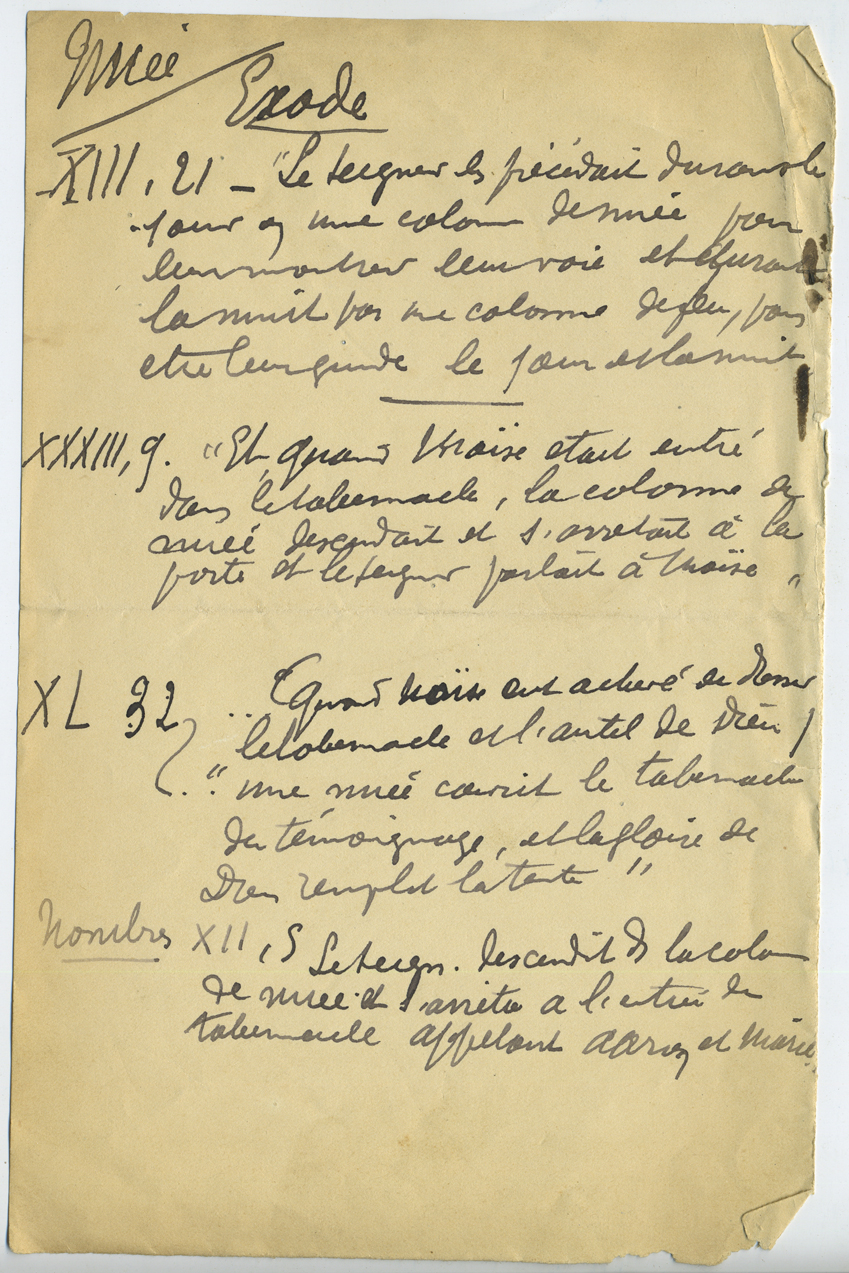 Nuée
Exode
XIII, 21 – "Le Seigneur les précédait durant le
jour en une colonne de nuée pour
leur montrer leur voie et durant
la nuit par une colonne de feu, pour
etre leur guide le jour et la nuit
XXXIII, 9. "Et quand Moïse etait entré
dans le tabernacle, la colonne de
nuée descendait et s'arretait à la
porte et le Seigneur parlait à Moïse "
XL 32 .. (quand Moïse eut achevé de dresser
le tabernacle et l'autel de Dieu)
." une nuée couvrit le tabernacle
du témoignage, et la gloire de
Dieu remplit la tente "
Nombres XII, 5 Le Seign. descendit ds la colonne
de nuée et s'arreta a l'entrée du
tabernacle appelant Aaron et Marie.